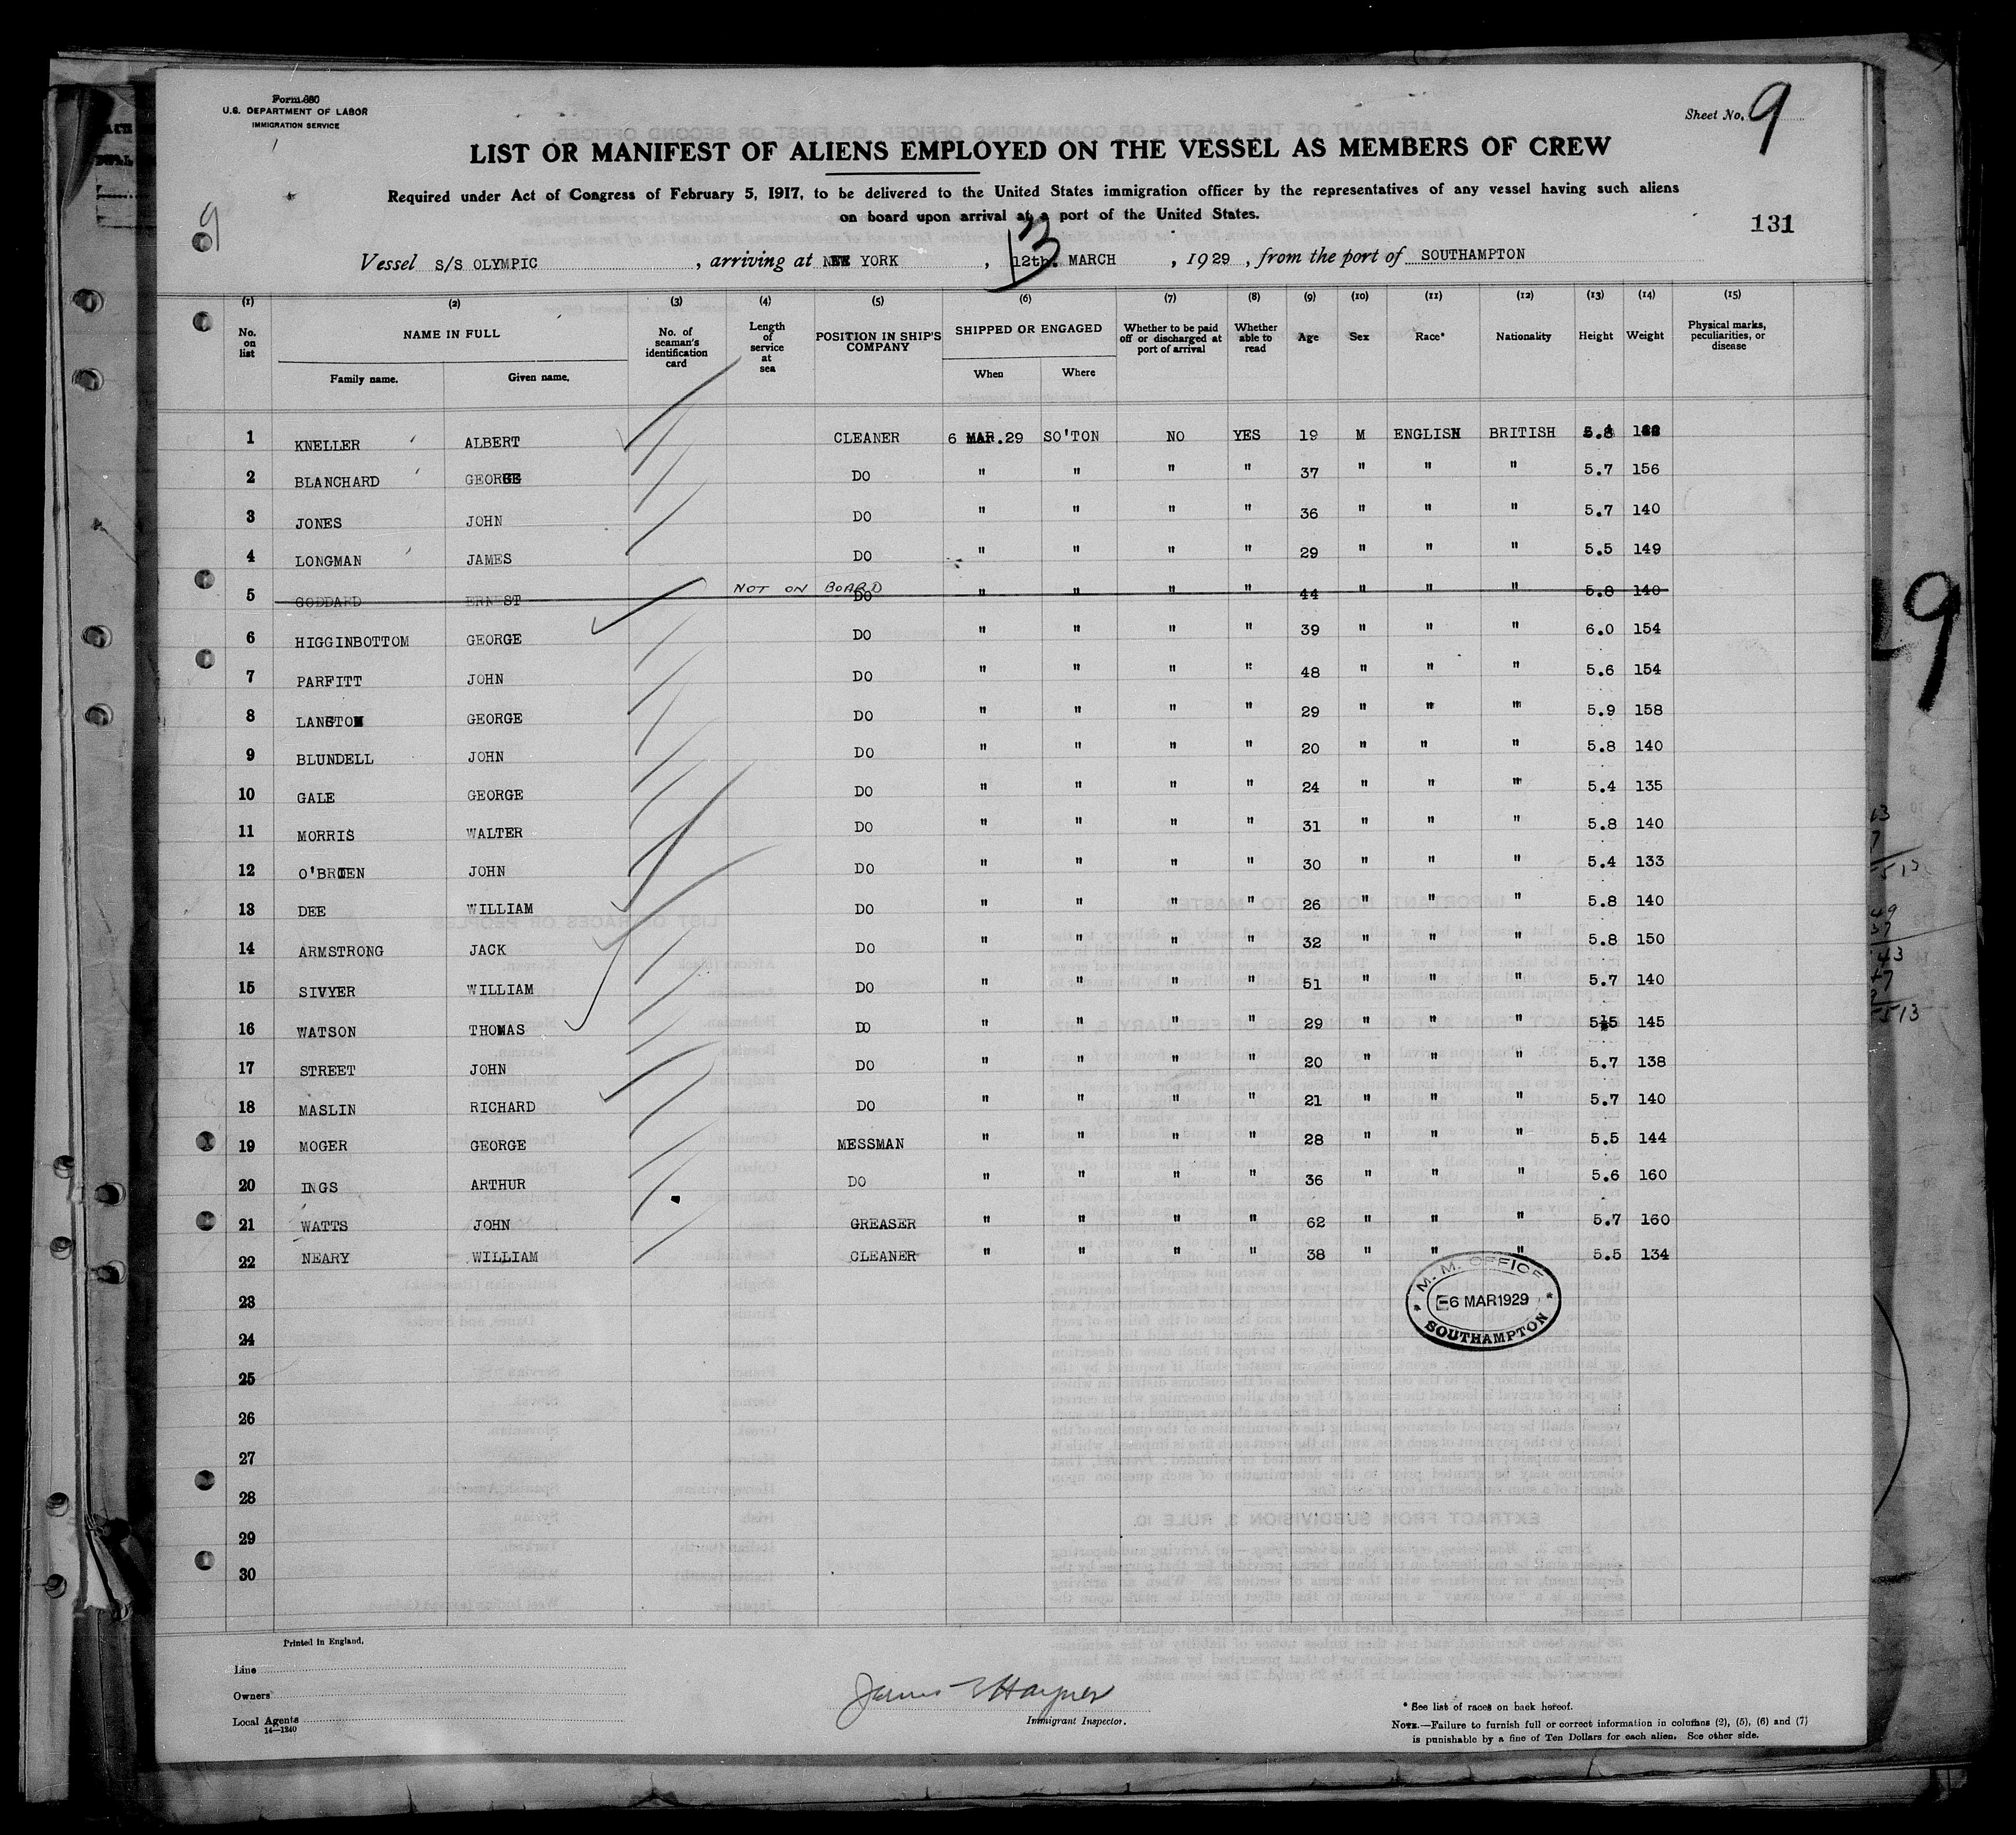 Form 680
U.S. DEPARTMENT OF LABOR
IMMIGRATION SERVICE
Sheet No. 9
LIST OR MANIFEST OF ALIENS EMPLOYED ON THE VESSEL AS MEMBERS OF CREW
Required under Act of Congress of February 5, 1917, to be delivered to the United States immigration officer by the representatives of any vessel having such aliens
on board upon arrival at a port of the United States.
9
131
Vessel S/S OLYMPIC, arriving at NEW YORK, 12th. 13 MARCH, 1929, from the port of SOUTHAMPTON
(1) (2) (3) (4) (5) (6) (7) (8) (9) (10) (11) (12) (13) (14) (15)
No. on list NAME IN FULL No. of seaman's identification card Length of service at sea POSITION IN SHIP'S COMPANY SHIPPED OR ENGAGED Whether to be paid off or discharged at port of arrival Whether able to read Age Sex Race* Nationality Height Weight Physical marks, peculiarities, or disease
Family name. Given name. When Where
1 KNELLER ALBERT CLEANER 6 MAR.29 SO'TON NO YES 19 M ENGLISH BRITISH
2 BLANCHARD GEORGE DO " " " " 37 " " " 5.7 156
3 JONES JOHN DO " " " " 36 " " " 5.7 140
4 LONGMAN JAMES DO " " " " 29 " " " 5.5 149
NOT ON BOARD
5 GODDARD ERNEST DO " " " " 44 " " " 5.8 140
6 HIGGINBOTTOM GEORGE DO " " " " 39 " " " 6.0 154
7 PARFITT JOHN DO " " " " 48 " " " 5.6 154
8 LANGTON GEORGE DO " " " " 29 " " " 5.9 158
9 BLUNDELL JOHN DO " " " " 20 " " " 5.8 140
10 GALE GEORGE DO " " " " 24 " " " 5.4 135
11 MORRIS WALTER DO " " " " 31 " " " 5.8 140
12 O'BRIEN JOHN DO " " " " 30 " " " 5.4 133
13 DEE WILLIAM DO " " " " 26 " " " 5.8 140
14 ARMSTRONG JACK DO " " " " 32 " " " 5.8 150
15 SIVYER WILLIAM DO " " " " 51 " " " 5.7 140
16 WATSON THOMAS DO " " " " 29 " " " 145
17 STREET JOHN DO " " " " 20 " " " 5.7 138
18 MASLIN RICHARD DO " " " " 21 " " " 5.7 140
19 MOGER GEORGE MESSMAN " " " " 28 " " " 5.5 144
20 INGS ARTHUR DO " " " " 36 " " " 5.6 160
21 WATTS JOHN GREASER " " " " 62 " " " 5.7 160
22 NEARY WILLIAM CLEANER " " " " 38 " " " 5.5 134
23
24
25
26
27
28
29
30
M. M. OFFICE
6 MAR 1929
SOUTHAMPTON
Printed in England.
Line
Owners
Local Agents
14—1240
Immigrant Inspector.
* See list of races on back hereof.
NOTE.—Failure to furnish full or correct information in columns (2), (5), (6) and (7)
is punishable by a fine of Ten Dollars for each alien. See other side.